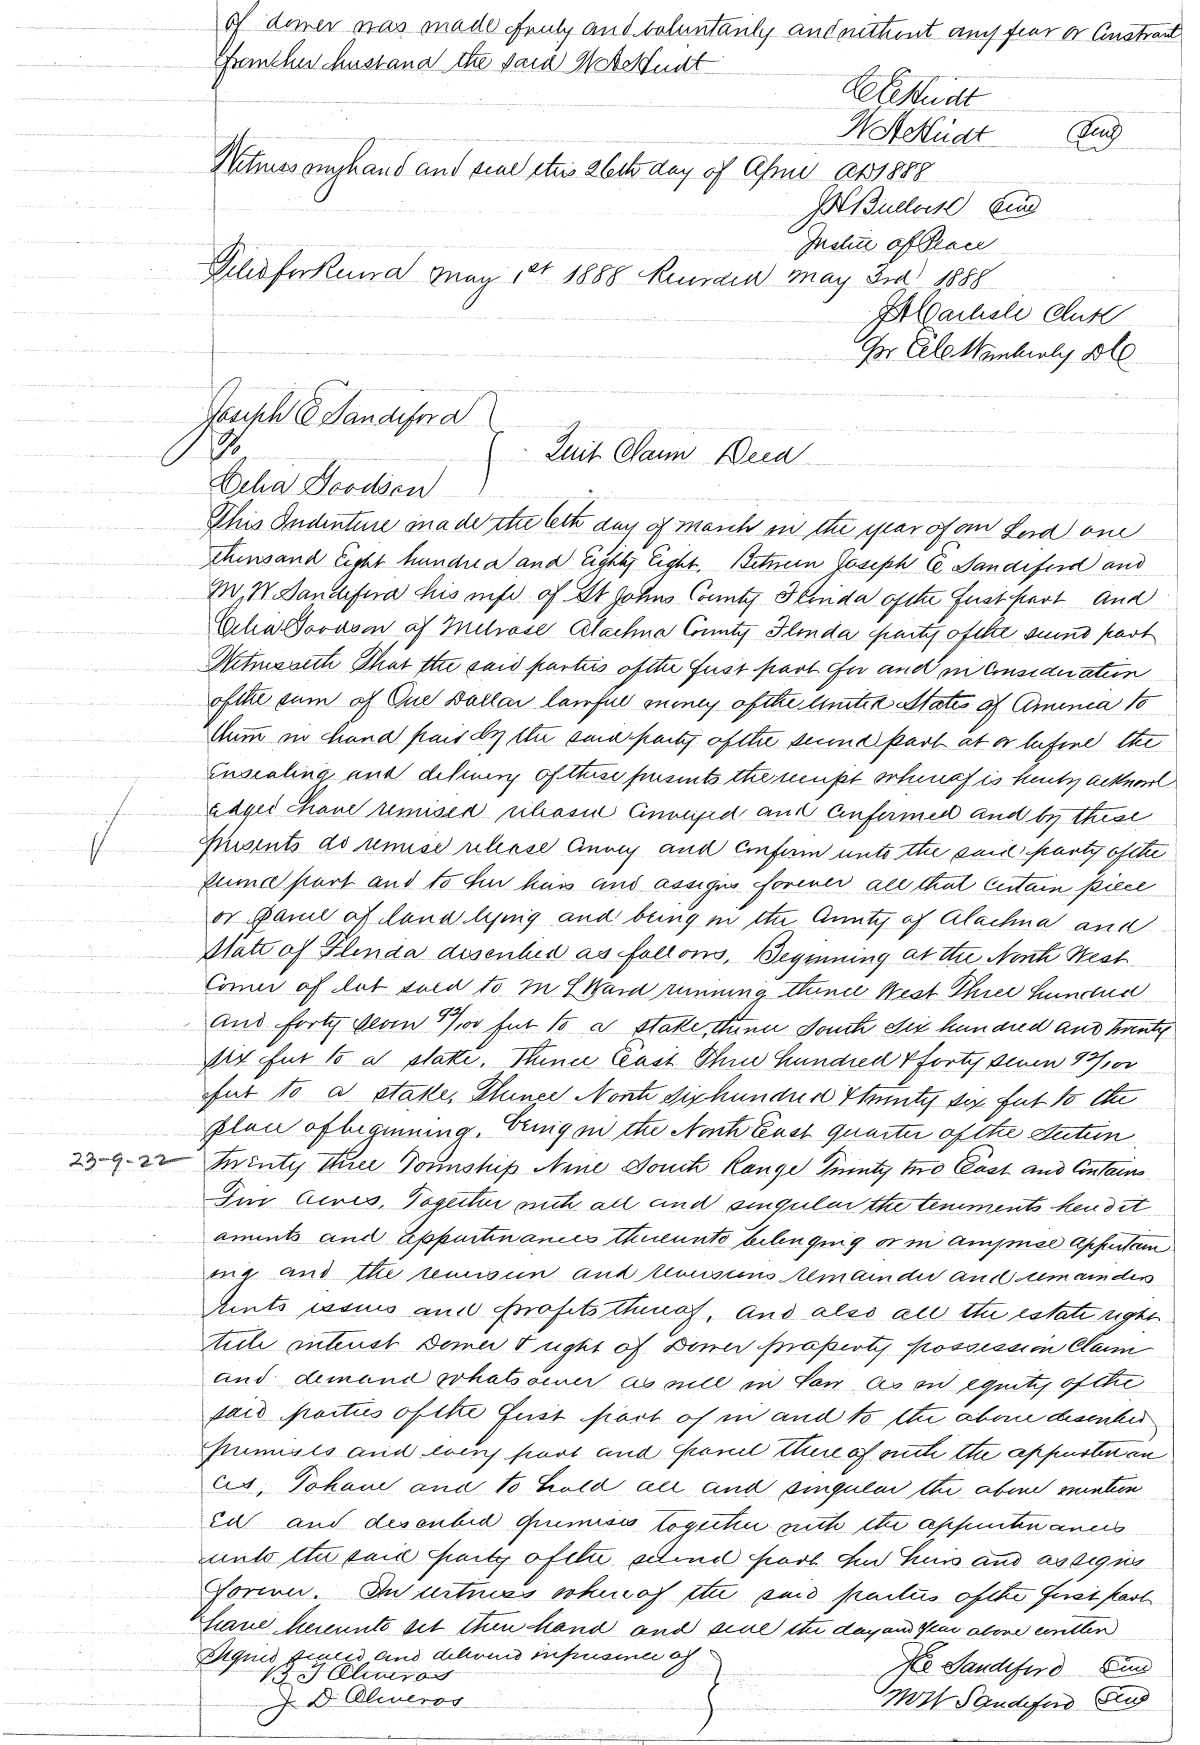 of dower was made freely and voluntarily and without any fear or Constraint
from her husband the said
Witness my hand and seal this 26th day of April AD 1888
Seal
Justice of Peace
Filed for Record May 1st 1888 Recorded May 3rd 1888
J A Carlisle Clerk
Pr Wimberly DC
Joseph E Sandiford
To
Quit Claim Deed
Celia Goodson
This Indenture made the 6th day of March in the year of our Lord one
thousand Eight hundred and Eighty Eight. Between Joseph E Sandiford and
M, W Sandiford his wife of St Johns County Florida of the first part and
Celia Goodson of Melrose Alachua County Florida party of the second part
Witnesseth That the said parties of the first part for and in Consideration
of the sum of One Dollar lawful money of the United States of America to
them in hand paid by the said party of the second part at or before the
ensealing and delivery of these presents the receipt whereof is hereby acknowl
edged have remised released Conveyed and Confirmed and by these
presents do remise release Convey and Confirm unto the said party of the
second part and to her heirs and assigns forever all that Certain piece
or parcel of land lying and being in the County of Alachua and
State of Florida described as follows, Beginning at the North West
Corner of lot sold to M L Ward running thence West Three hundred
and forty seven 92/100 feet to a stake, thence South Six hundred and twenty
six feet to a stake. Thence East Three hundred & forty seven 92/100
feet to a stake, Thence North Six hundred & twenty six feet to the
place of beginning, being in the North East quarter of the Section
23-9-22 twenty three Township Nine South Range Twenty two East and Contains
Five Acres, Together with all and singular the tenements heredit
aments and appurtenances thereunto belonging or in anywise appertain
ing and the reversion and reversions remainder and remainders
rents issues and profits thereof, and also all the estate right
title interest Dower & right of Dower property possession Claim
and demand whatsoever as well in Law as in equity of the
said parties of the first part of in and to the above described
premises and every part and parcel thereof with the appurtenan
ces, To have and to hold all and singular the above mention
ed and described premises together with the appurtenances
unto the said party of the second part her heirs and assigns
forever. In witness whereof the said parties of the first part
have hereunto set their hand and seal the day and year above written
Signed sealed and delivered in presence of
B J Oliveros
J E Sandiford Seal
J. D Oliveros
M W Sandiford Seal